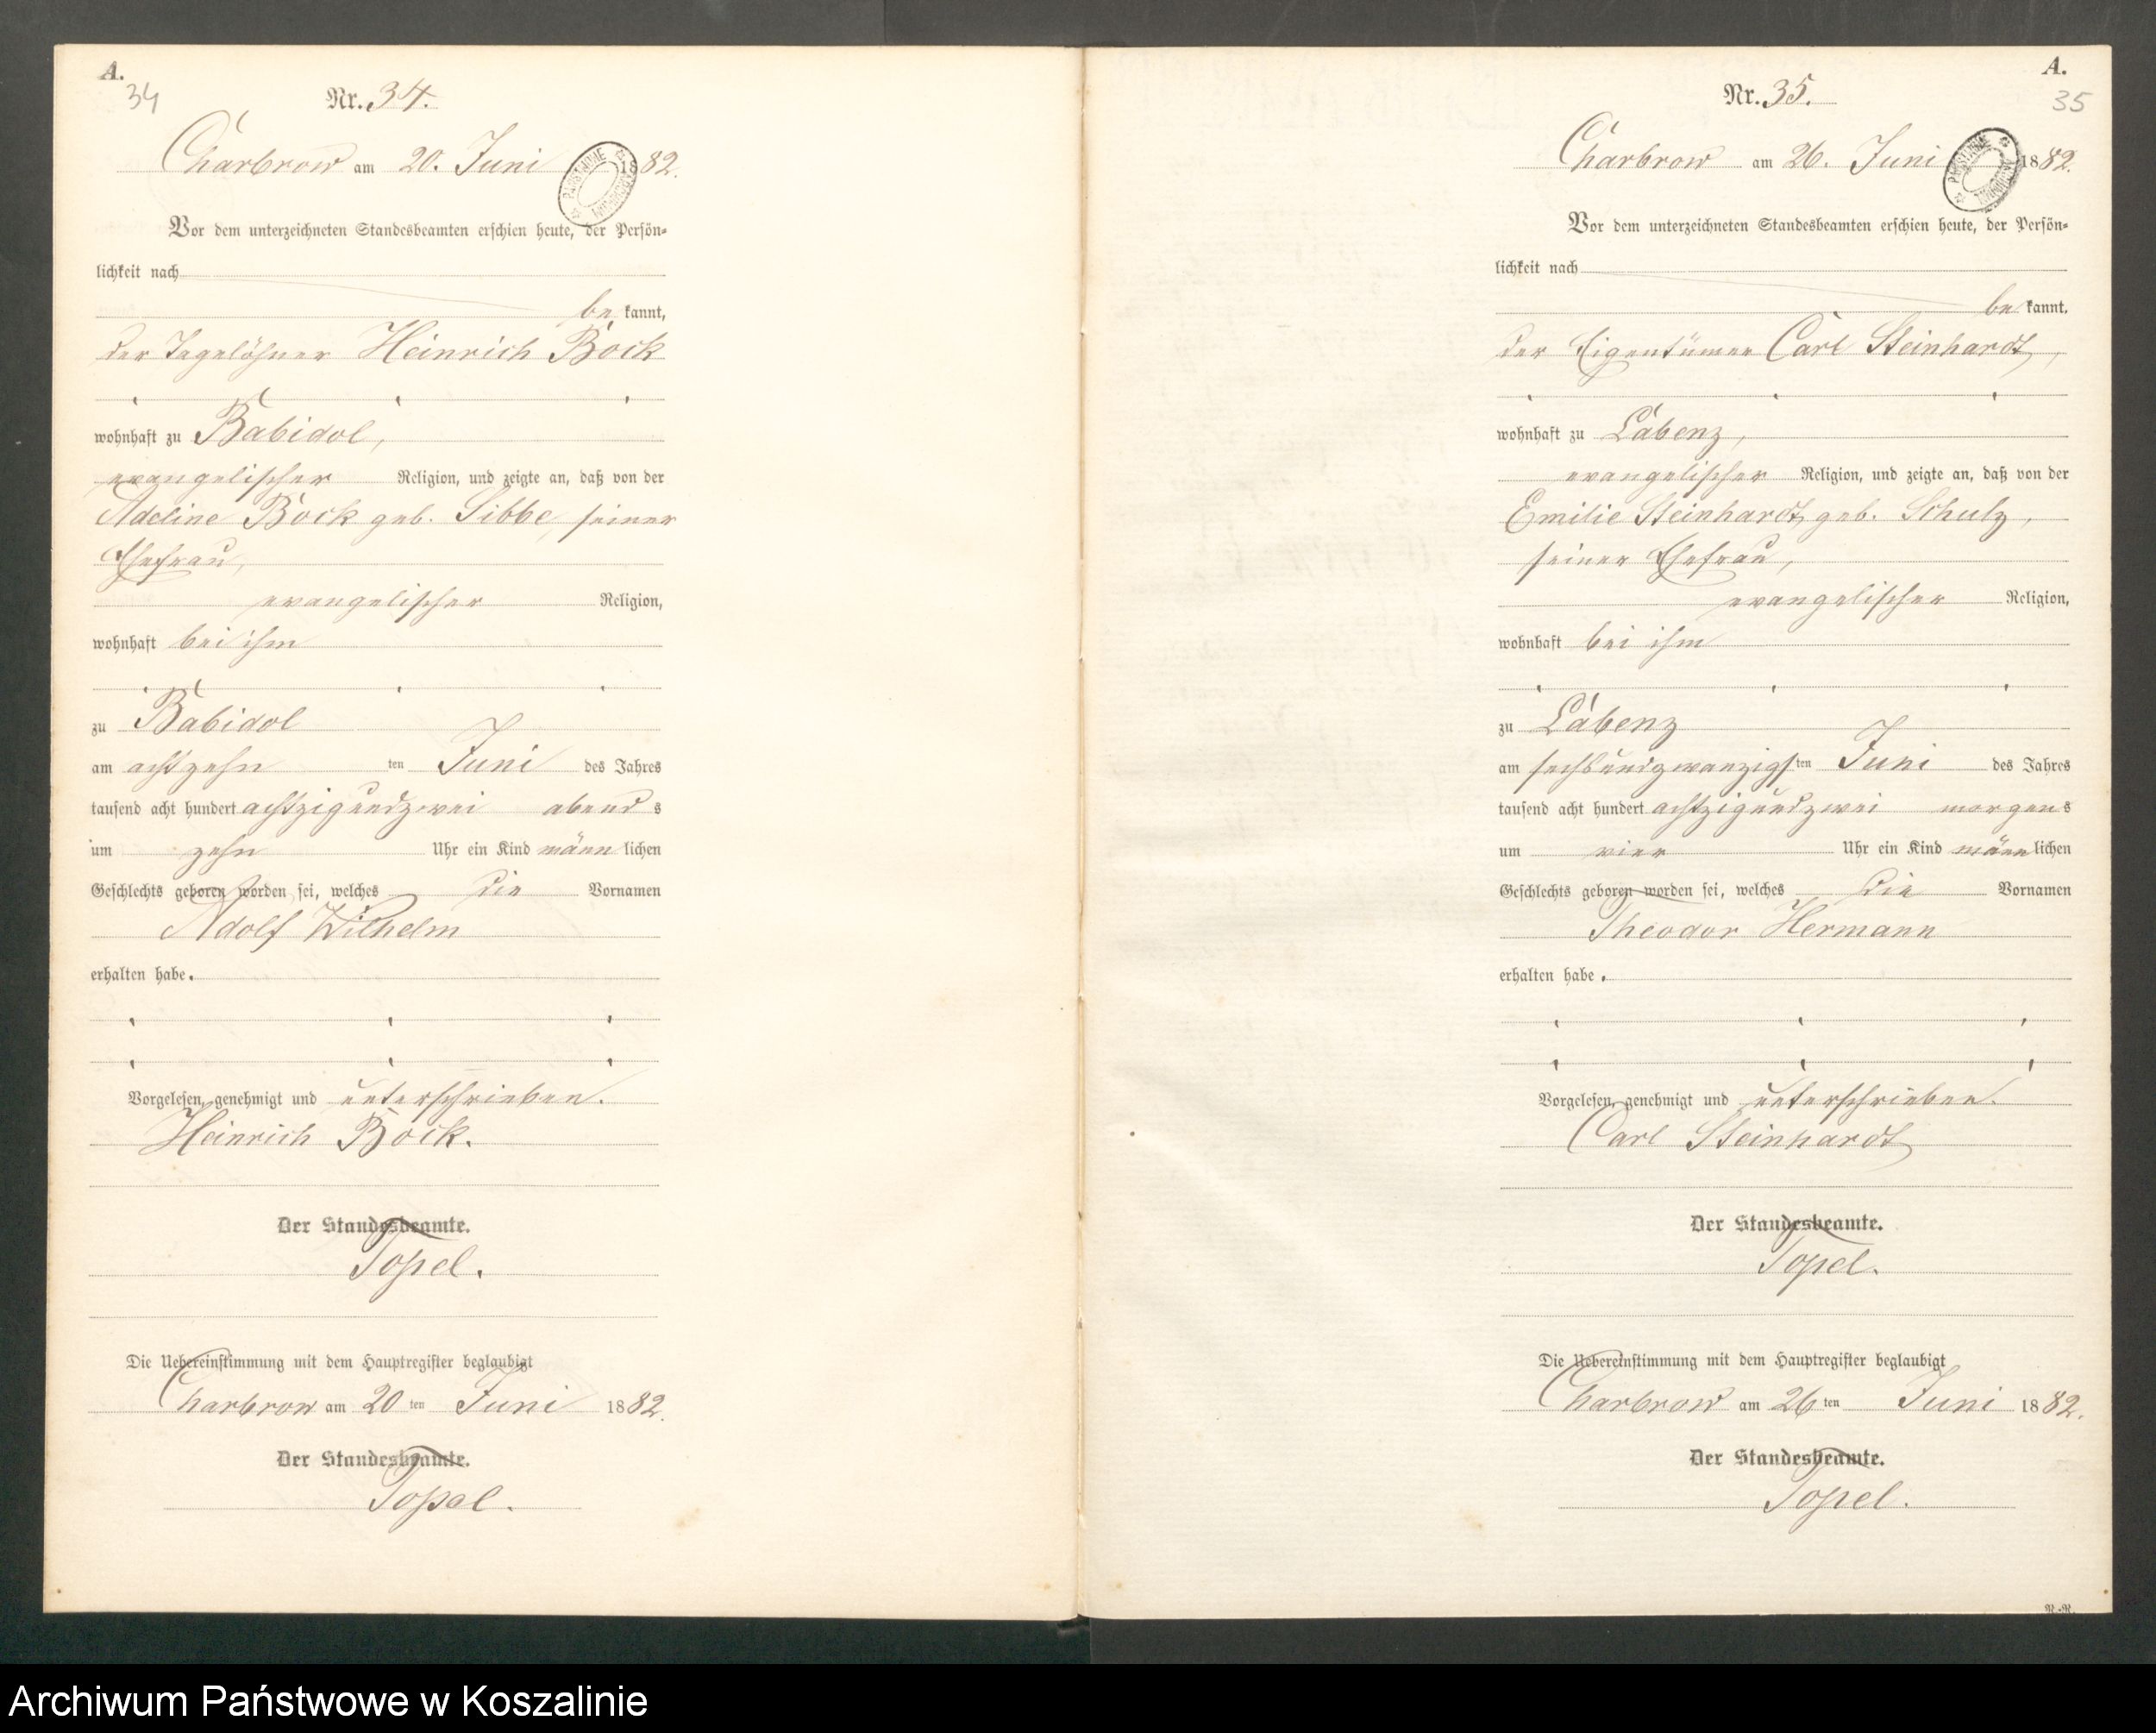 A.
34
Nr. 34.
Charbrow am 20. Juni 1882.
Vor dem unterzeichneten Standesbeamten erschien heute, der Persön=
lichkeit nach
be kannt,
der Tagelöhner Heinrich Bock
wohnhaft zu Babidol,
evangelischer Religion, und zeigte an, daß von der
Adeline Bock geb. Libbe, seiner
Ehefrau,
evangelischer Religion,
wohnhaft bei ihm
zu Babidol
am achtzehn ten Juni des Jahres
tausend acht hundert achtzigundzwei abend s
um zehn Uhr ein Kind männ lichen
Geschlechts geboren worden sei, welches die Vornamen
Adolf Wilhelm
erhalten habe.
Vorgelesen, genehmigt und unterschrieben.
Heinrich Bock.
Der Standesbeamte.
Topel.
Die Uebereinstimmung mit dem Hauptregister beglaubigt
Charbrow am 20 ten Juni 1882.
Der Standesbeamte.
Topel.
A.
35
Nr. 35.
Charbrow am 26. Juni 1882.
Vor dem unterzeichneten Standesbeamten erschien heute, der Persön=
lichkeit nach
be kannt,
der Eigentümer Carl Steinhardt,
wohnhaft zu Labenz,
evangelischer Religion, und zeigte an, daß von der
Emilie Steinhardt geb. Schulz,
seiner Ehefrau,
evangelischer Religion,
wohnhaft bei ihm
zu Labenz
am sechsundzwanzigsten Juni des Jahres
tausend acht hundert achtzigundzwei morgens
um vier Uhr ein Kind männlichen
Geschlechts geboren worden sei, welches die Vornamen
Theodor Hermann
erhalten habe.
Vorgelesen, genehmigt und unterschrieben.
Carl Steinhardt
Der Standesbeamte.
Topel.
Die Uebereinstimmung mit dem Hauptregister beglaubigt
Charbrow am 26 ten Juni 1882.
Der Standesbeamte.
Topel.
R.-R.
Archiwum Państwowe w Koszalinie